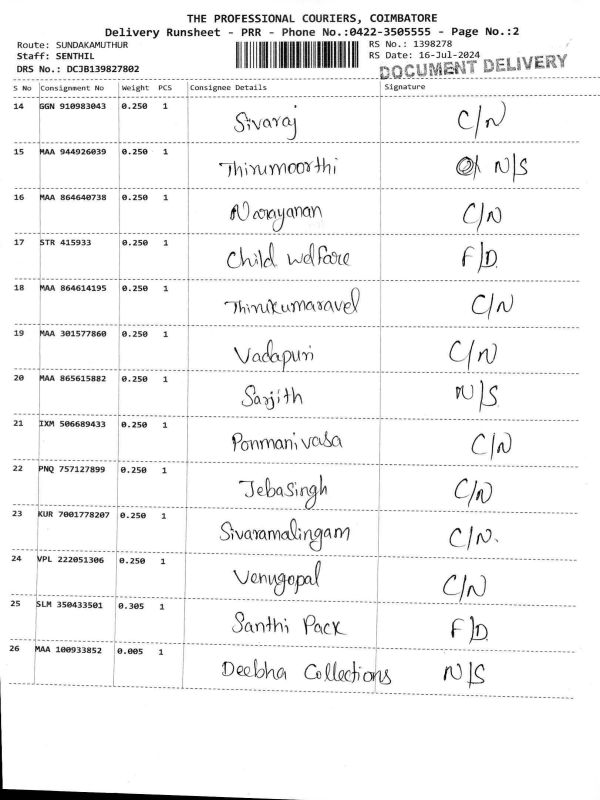 THE PROFESSIONAL COURIERS, COIMBATORE
Delivery Runsheet - PRR - Phone No.:0422-3505555 - Page No.:2
Route: SUNDAKAMUTHUR RS No.: 1398278
Staff: SENTHIL RS Date: 16-Jul-2024
DRS No.: DCJB139827802 DOCUMENT DELIVERY
S No Consignment No Weight PCS Consignee Details Signature
14 GGN 910983043 0.250 1 Sivaraj C/N
15 MAA 944926039 0.250 1 Thirumoorthi N/S
16 MAA 864640738 0.250 1 Narayanan C/N
17 STR 415933 0.250 1 Child Welfare F/D.
18 MAA 864614195 0.250 1 Thirukumaravel C/N
19 MAA 301577860 0.250 1 Vadapuri C/N
20 MAA 865615882 0.250 1 Sarjith N/S.
21 IXM 506689433 0.250 1 Ponmanivasa C/N
22 PNQ 757127899 0.250 1 Jebasingh C/N
23 KUR 7001778207 0.250 1 Sivaramalingam C/N.
24 VPL 222051306 0.250 1 Venugopal C/N
25 SLM 350433501 0.305 1 Santhi Pack F/D.
26 MAA 100933852 0.005 1 Deebha Collections N/S